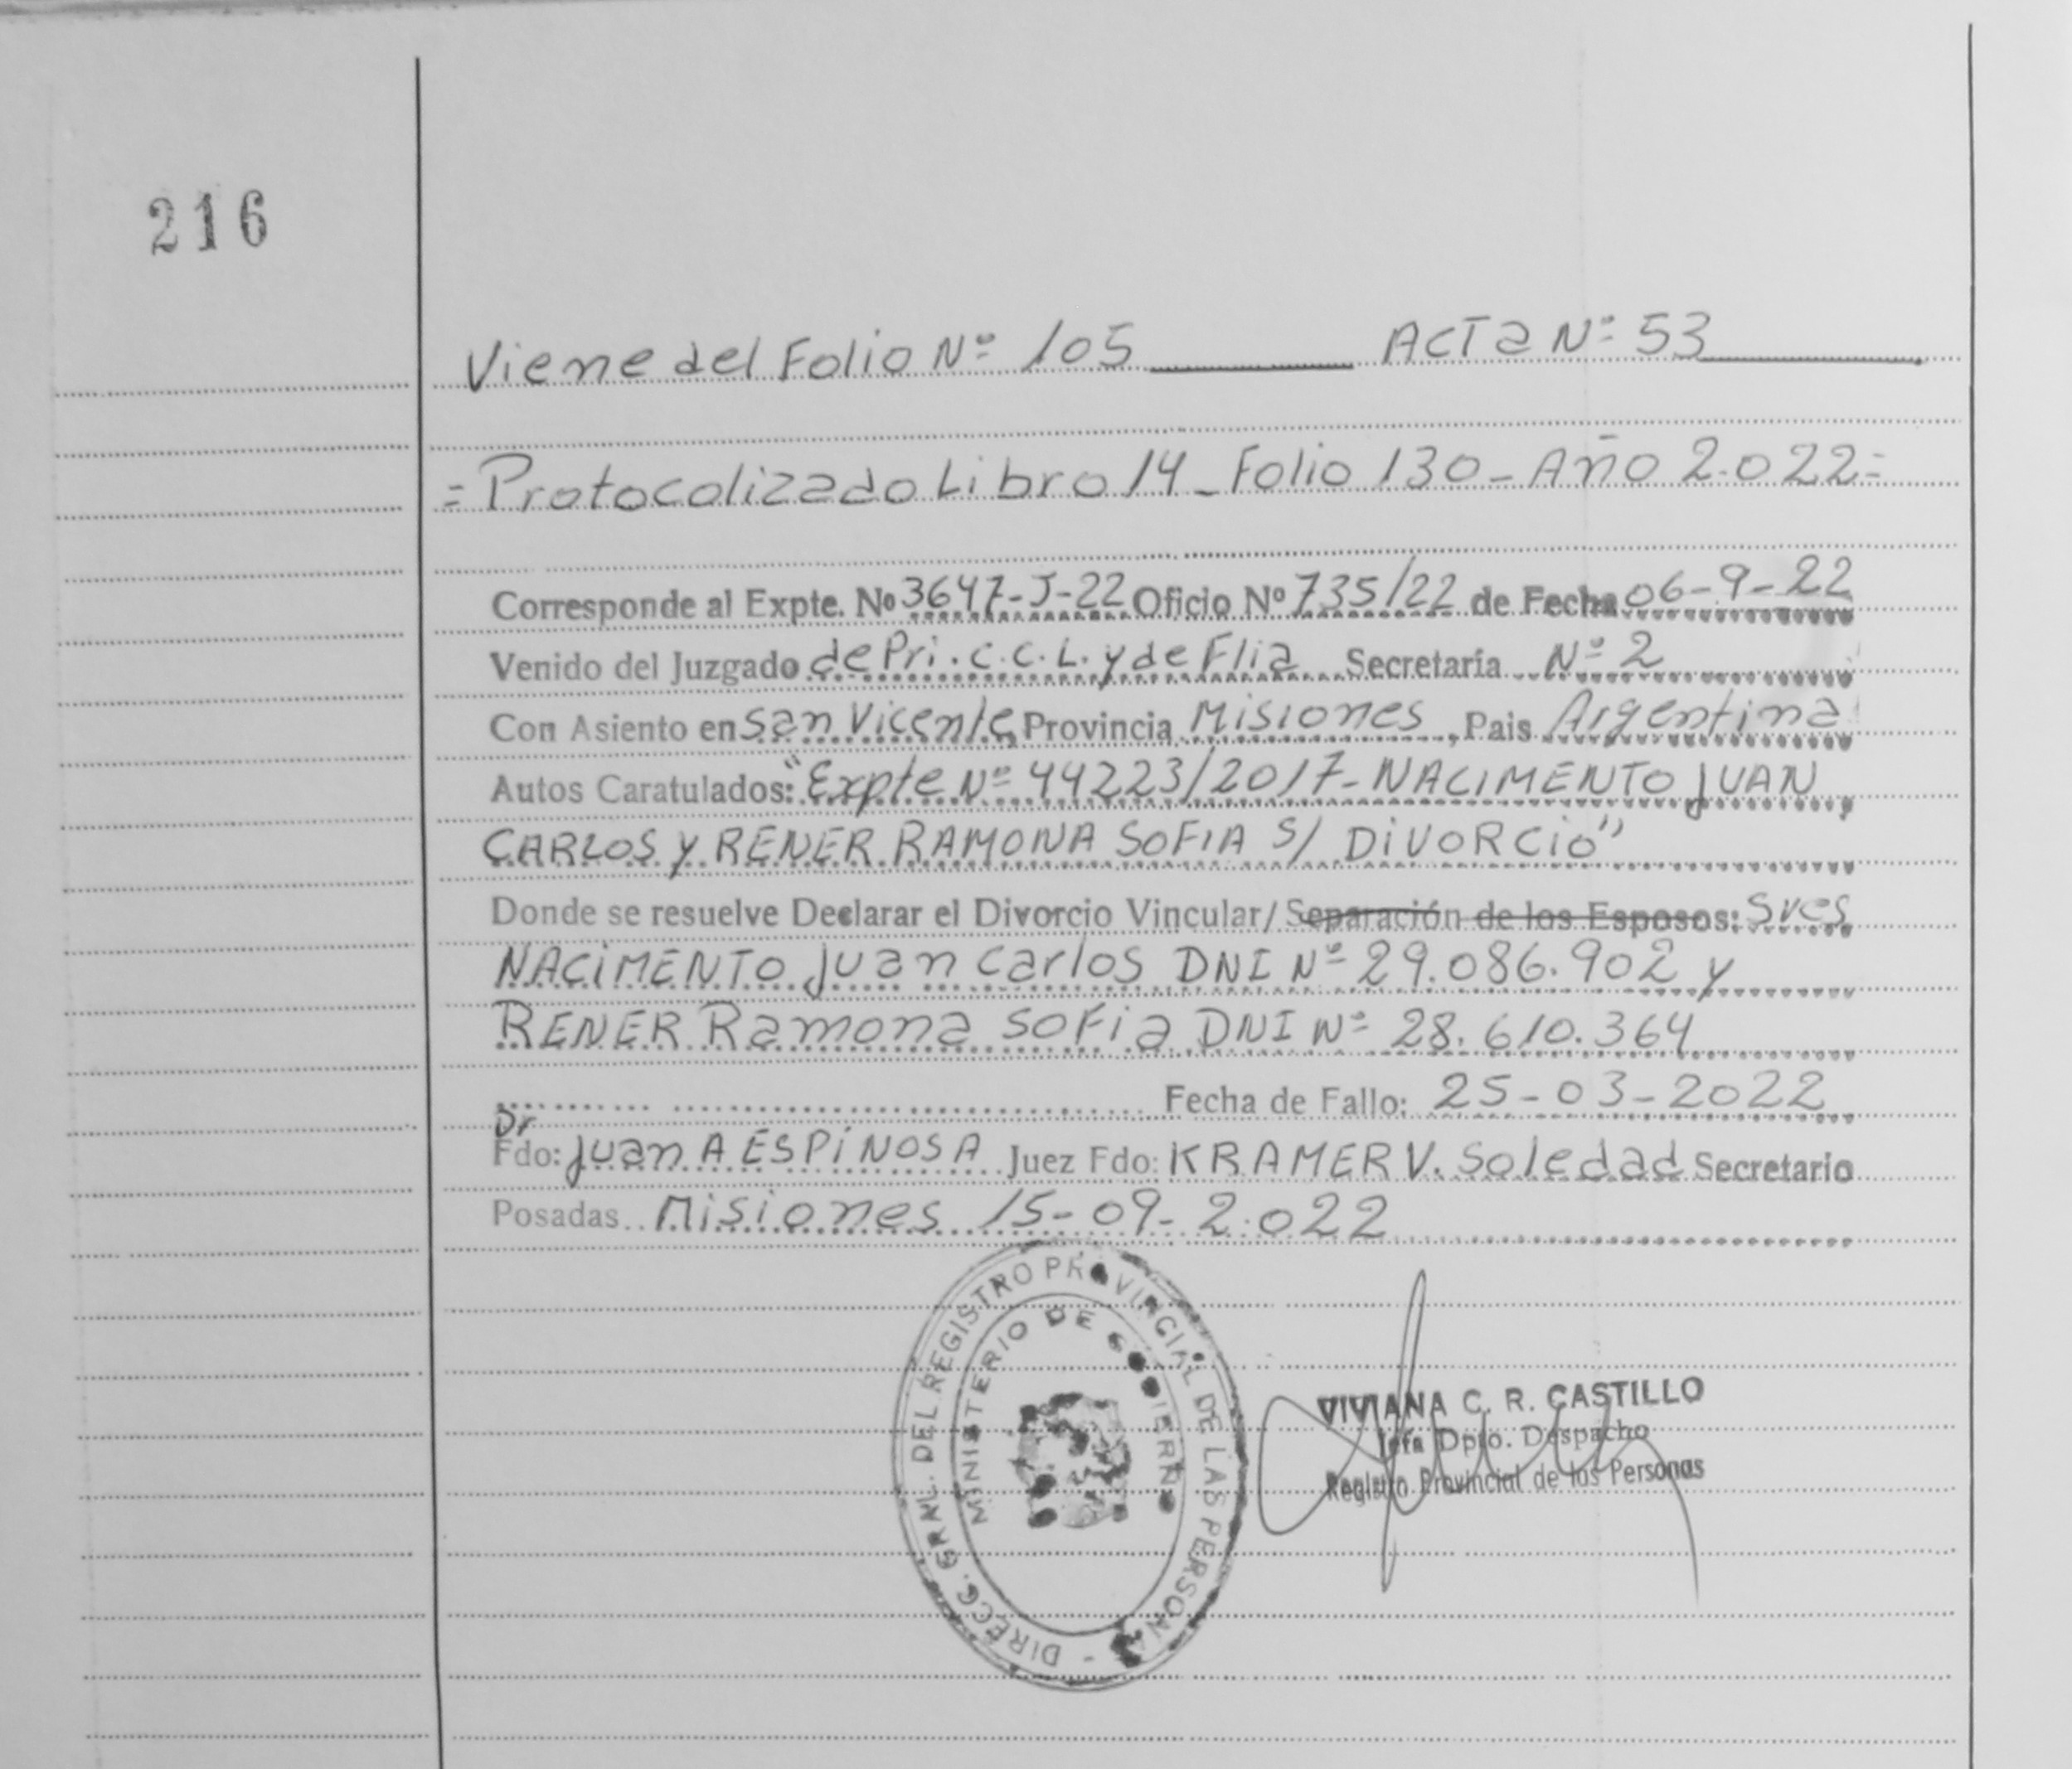 216
Viene del Folio Nº 105 Acta Nº 53
= Protocolizado Libro 14 - Folio 130 - Año 2.022 =
Corresponde al Expte. Nº 3647-J-22 Oficio Nº 735/22 de Fecha 06-9-22
Venido del Juzgado de Pri. C.C.L. y de Flia Secretaría Nº 2
Con Asiento en San Vicente, Provincia Misiones, Pais Argentina
Autos Caratulados: "Expte Nº 44223/2017 - NACIMENTO JUAN
CARLOS Y RENER RAMONA SOFIA S/ DIVORCIO"
Donde se resuelve Declarar el Divorcio Vincular/Separación de los Esposos: Sres
NACIMENTO Juan Carlos DNI Nº 29.086.902 y
RENER Ramona Sofia DNI Nº 28.610.364
Fecha de Fallo: 25-03-2022
Dr
Fdo: Juan A ESPINOSA Juez Fdo: KRAMER V. Soledad Secretario
Posadas Misiones 15-09-2.022
DIRECC. GRAL. DEL REGISTRO PROVINCIAL DE LAS PERSONAS -
MINISTERIO DE GOBIERNO
VIVIANA C. R. CASTILLO
Jefa Dpto. Despacho
Registro Provincial de las Personas